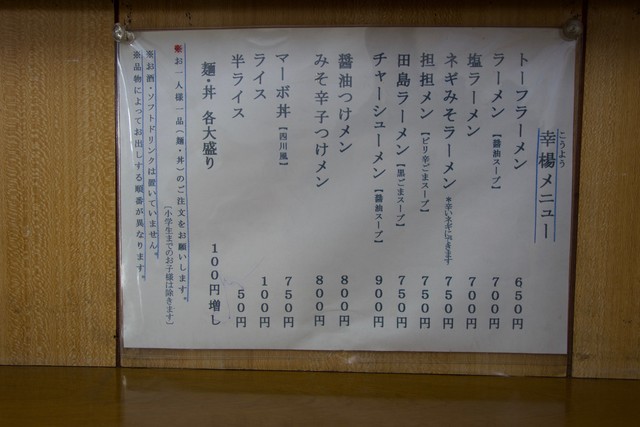 こうよう
幸楊メニュー
トーフラーメン 650円
ラーメン【醤油スープ】 700円
塩ラーメン 700円
ネギみそラーメン *辛いネギにできます 750円
担担メン【ピリ辛ごまスープ】 750円
田島ラーメン【黒ごまスープ】 750円
チャーシューメン【醤油スープ】 900円
醤油つけメン 800円
みそ辛子つけメン 800円
マーボ丼【四川風】 750円
ライス 100円
半ライス 50円
麺・丼 各大盛り 100円増し
※お一人様一品(麺・丼)のご注文をお願いします。
(小学生までのお子様は除きます)
※お酒・ソフトドリンクは置いていません。
※品物によってお出しする順番が異なります。